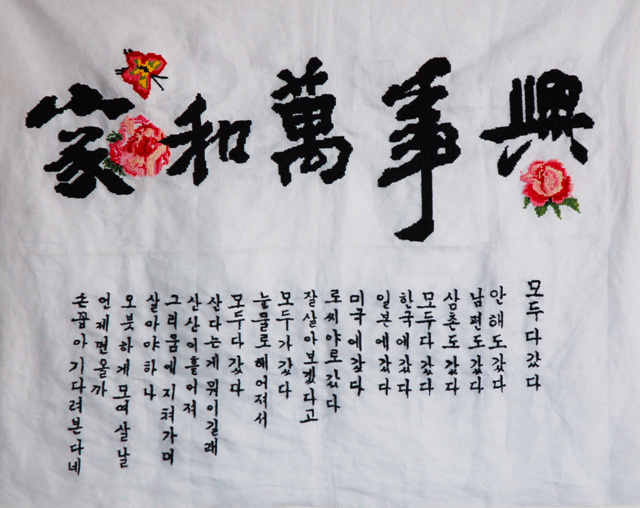 家和萬事興
모두 다 갔다
안해도 갔다
남편도 갔다
삼촌도 갔다
모두다 갔다
한국에 갔다
일본에 갔다
미국에 갔다
로씨야로 갔다
잘살아보겠다고
모두가 갔다
눈물로 헤어져서
모두다 갔다
산다는게 뭐이길래
산산이 흩어져
그리움에 지쳐가며
살아야 하나
오붓하게 모여 살 날
언제면 올까
손꼽아 기다려본다네